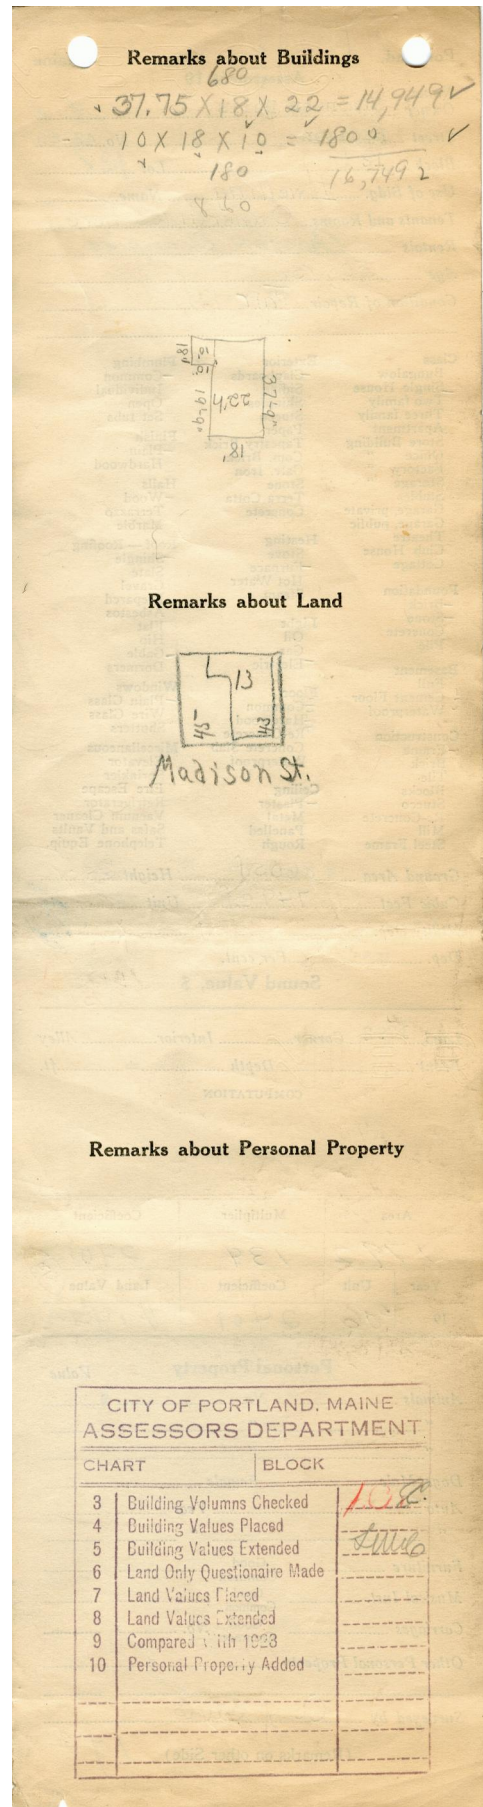 Remarks about Buildings
680
37.75 X 18 X 22 = 14,949 ✓
10 X 18 X 10 = 1800 ✓
180
16,749 2
18'
10'
10'
19'-9"
22.4
37'-9"
18'
Remarks about Land
13
45
43
Madison St.
Remarks about Personal Property
CITY OF PORTLAND, MAINE
ASSESSORS DEPARTMENT
CHART BLOCK
3 Building Volumns Checked
4 Building Values Placed
5 Building Values Extended
6 Land Only Questionaire Made
7 Land Values Placed
8 Land Values Extended
9 Compared With 1923
10 Personal Property Added